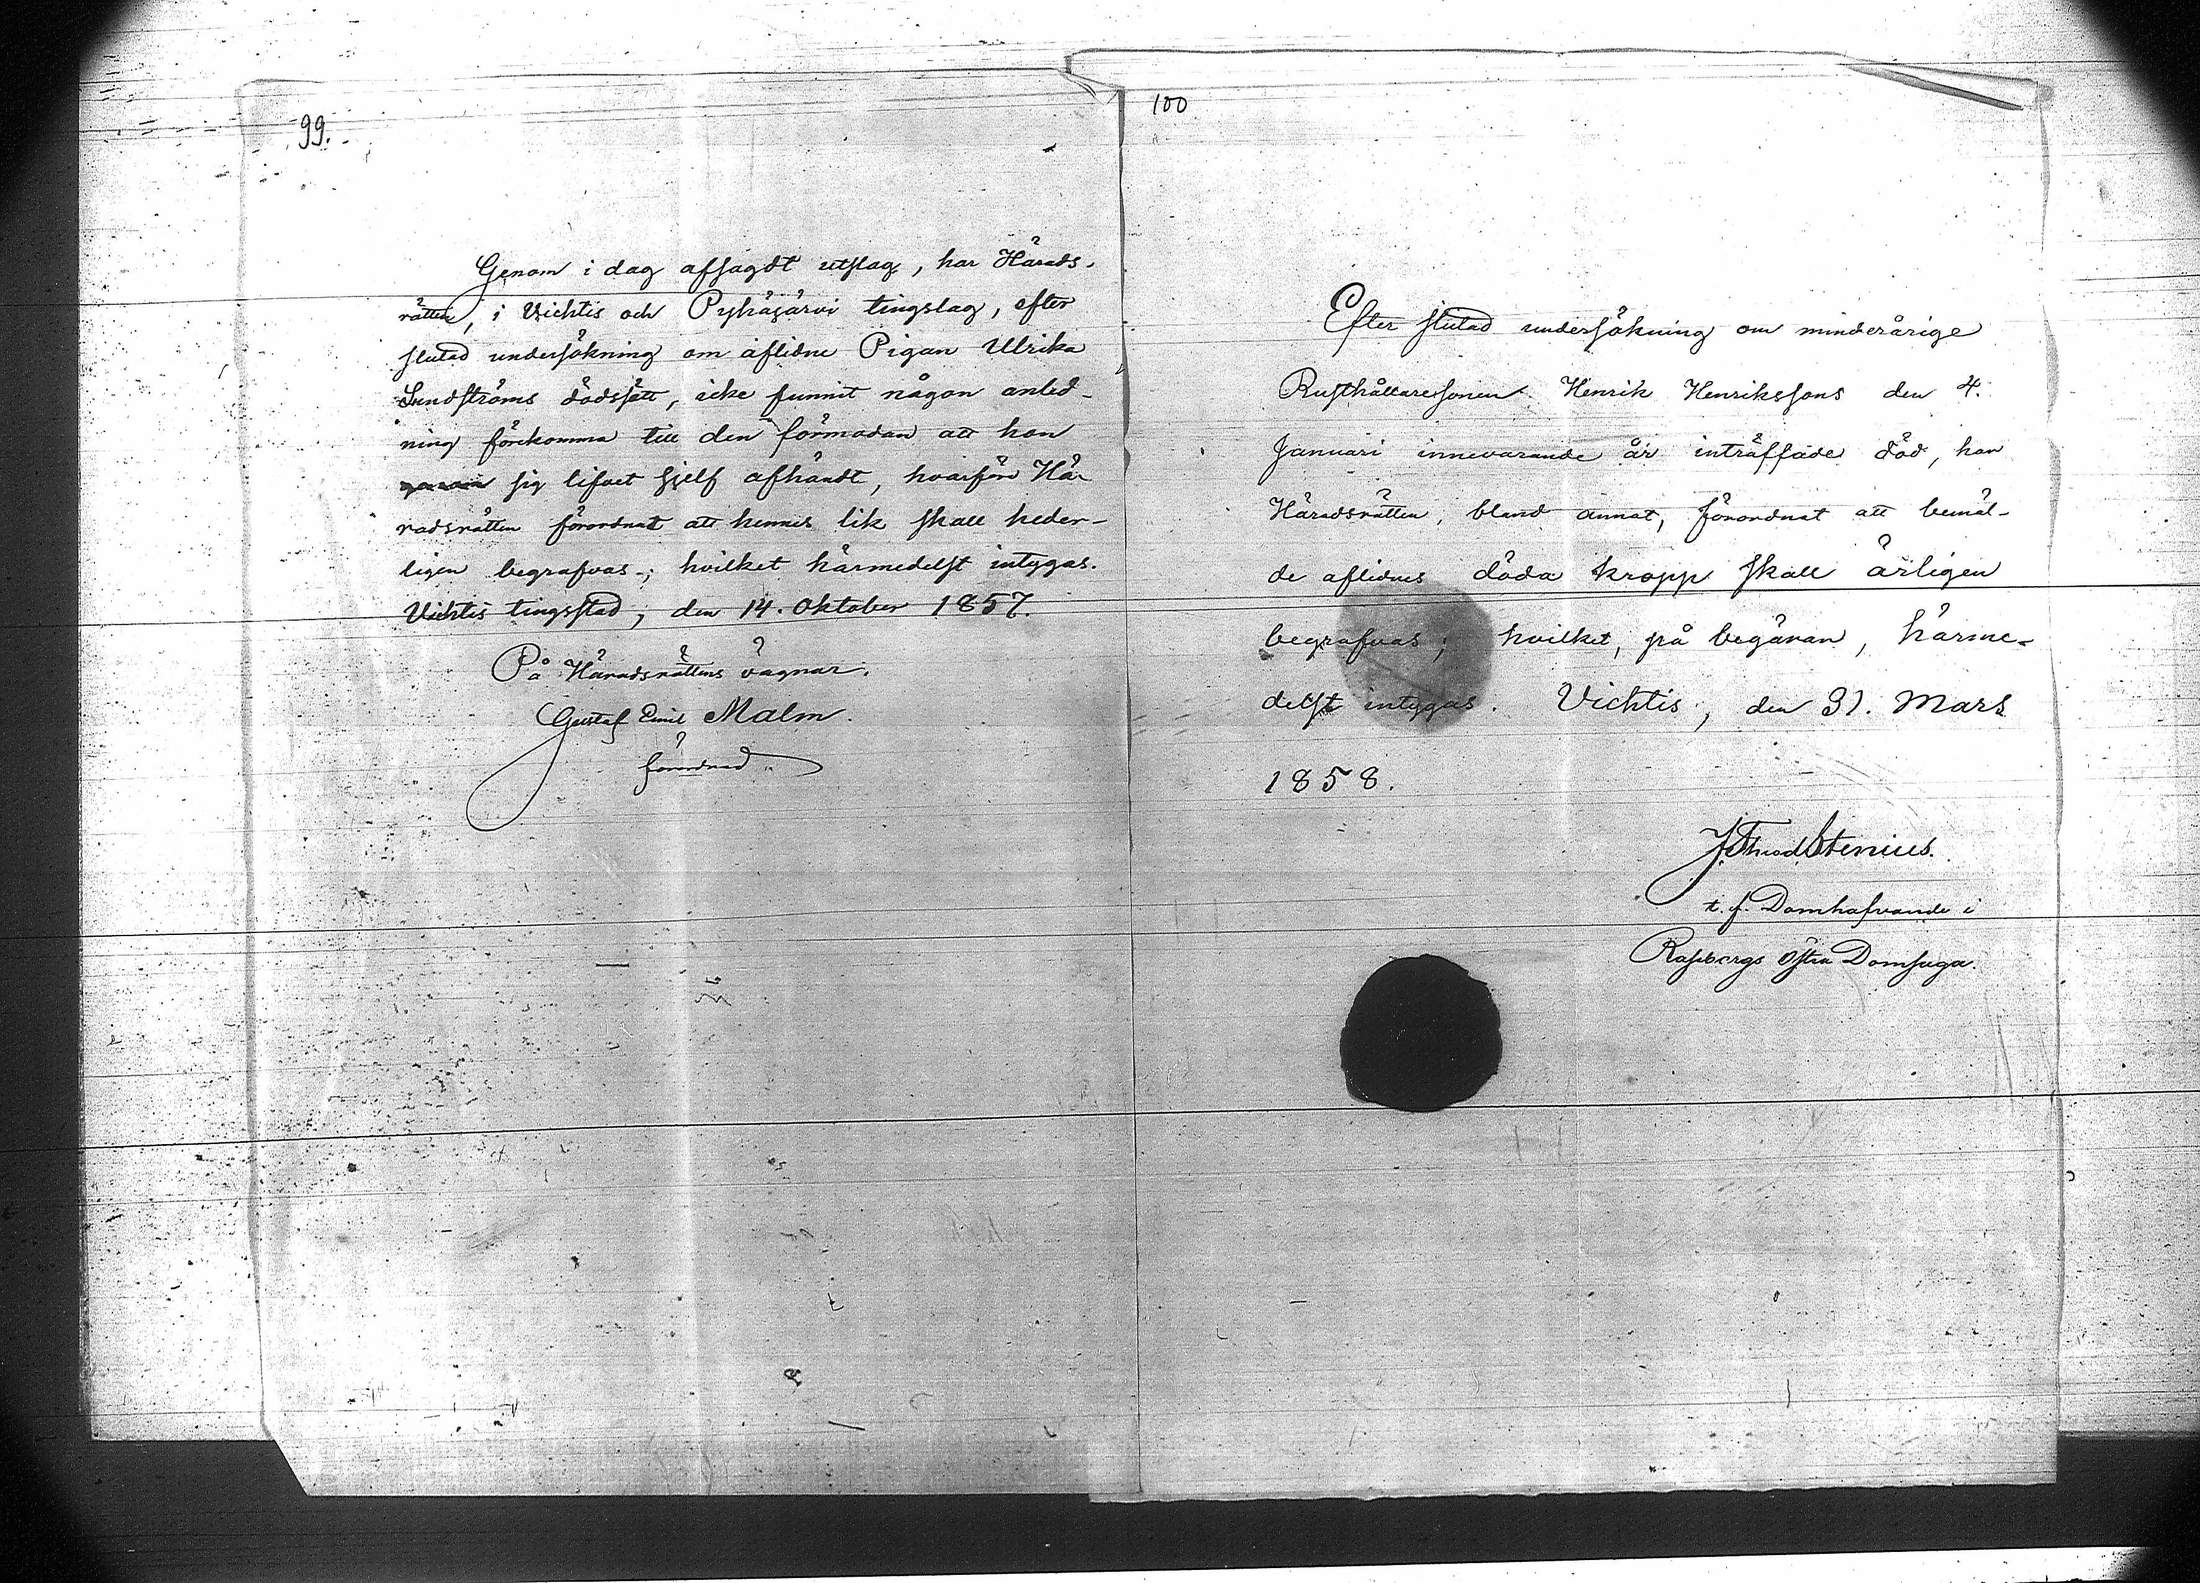 99.
Genom i dag afsagdt utslag, har Härads-
rätten, i Vichtis och Pyhäjärvi tingslag, efter
slutad undersökning om aflidne Pigan Ulrika
Lundströms dödssätt, icke funnit någon anled-
ning förekomma till den förmodan att hon
sig lifvet sjelf afhändt, hvarför Hä-
radsrätten förordnat att hennes lik skall heder-
ligen begrafvas; hvilket härmedelst intygas.
Vichtis tingsstad, den 14. Oktober 1857.
På Häradsrättens vägnar.
Gustaf Emil Malm.
förordnad
100
Efter slutad undersökning om minderårige
Rusthållaresonen Henrik Henrikssons den 4.
Januari innevarande år inträffade död, har
Häradsrätten, bland annat, förordnat att bemäl-
de aflidnes döda kropp skall ärligen
begrafvas; hvilket, på begäran, härme-
delst intygas. Vichtis, den 31. Mars
1858.
J. Theod Stenius.
t. f. Domhafvande i
Raseborgs östra Domsaga.